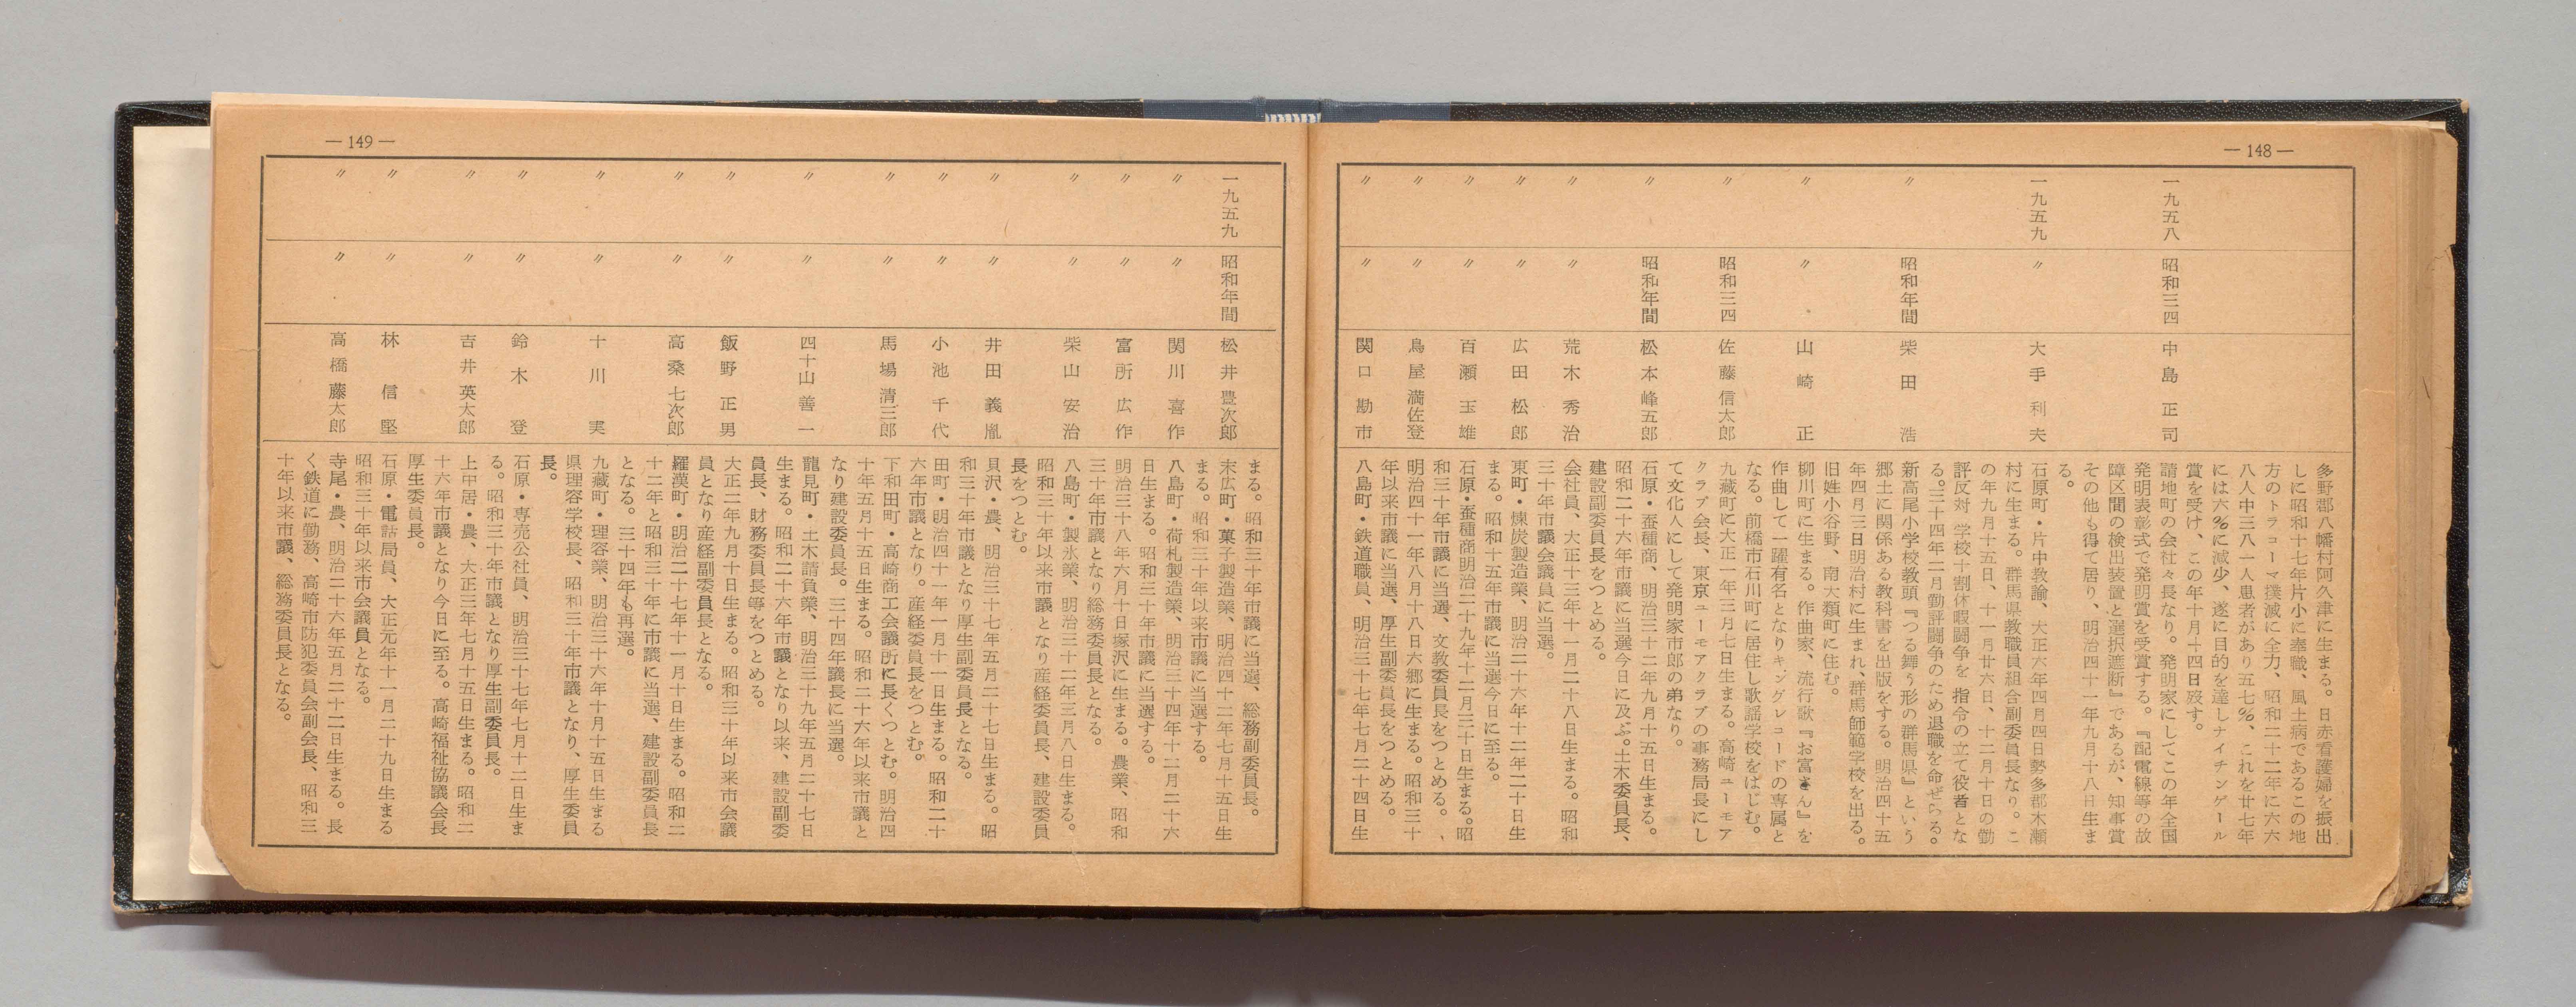 — 148 —
多野郡八幡村阿久津に生まる。日赤看護婦を振出
しに昭和十七年片小に奉職、風土病であるこの地
方のトラコーマ撲滅に全力、昭和二十二年に六六
八人中三八一人患者があり五七%、これを廿七年
には六%に減少、遂に目的を達しナイチンゲール
賞を受け、この年十月十四日歿す。
一九五八 昭和三四 中島正司 請地町の会社々長なり。発明家にしてこの年全国
発明表彰式で発明賞を受賞する。『配電線等の故
障区間の検出装置と選択遮断』であるが、知事賞
その他も得て居り、明治四十一年九月十八日生ま
る。
一九五九 〃 大手利夫 石原町・片中教諭、大正六年四月四日勢多郡木瀬
村に生まる。群馬県教職員組合副委員長なり。こ
の年九月十五日、十一月廿六日、十二月十日の勤
評反対 学校十割休暇闘争を 指令の立て役者とな
る。三十四年二月勤評闘争のため退職を命ぜらる。
〃 昭和年間 柴田浩 新高尾小学校教頭『つる舞う形の群馬県』という
郷土に関係ある教科書を出版をする。明治四十五
年四月三日明治村に生まれ、群馬師範学校を出る。
旧姓小谷野、南大類町に住む。
〃 〃 山崎正 柳川町に生まる。作曲家、流行歌『お富さん』を
作曲して一躍有名となりキングレコードの専属と
なる。前橋市石川町に居住し歌謡学校をはじむ。
〃 昭和三四 佐藤信太郎 九蔵町に大正一年三月七日生まる。高崎ユーモア
クラブ会長、東京ユーモアクラブの事務局長にし
て文化人にして発明家市郎の弟なり。
〃 昭和年間 松本峰五郎 石原・蚕種商、明治三十二年九月十五日生まる。
昭和二十六年市議に当選今日に及ぶ。土木委員長、
建設副委員長をつとめる。
〃 〃 荒木秀治 会社員、大正十三年十一月二十八日生まる。昭和
三十年市議会議員に当選。
〃 〃 広田松郎 東町・煉炭製造業、明治二十六年十二年二十日生
まる。昭和十五年市議に当選今日に至る。
〃 〃 百瀬玉雄 石原・蚕種商明治二十九年十二月三十日生まる。昭
和三十年市議に当選、文教委員長をつとめる。
〃 〃 鳥屋満佐登 明治四十一年八月十八日六郷に生まる。昭和三十
年以来市議に当選、厚生副委員長をつとめる。
〃 〃 関口勘市 八島町・鉄道職員、明治三十七年七月二十四日生
— 149 —
まる。昭和三十年市議に当選、総務副委員長。
一九五九 昭和年間 松井豊次郎 末広町・菓子製造業、明治四十二年七月十五日生
まる。昭和三十年以来市議に当選する。
〃 〃 関川喜作 八島町・荷札製造業、明治三十四年十二月二十六
日生まる。昭和三十年市議に当選する。
〃 〃 富所広作 明治三十八年六月十日塚沢に生まる。農業、昭和
三十年市議となり総務委員長となる。
〃 〃 柴山安治 八島町・製氷業、明治三十二年三月八日生まる。
昭和三十年以来市議となり産経委員長、建設委員
長をつとむ。
〃 〃 井田義胤 貝沢・農、明治三十七年五月二十七日生まる。昭
和三十年市議となり厚生副委員長となる。
〃 〃 小池千代 田町・明治四十一年一月十一日生まる。昭和二十
六年市議となり。産経委員長をつとむ。
〃 〃 馬場清三郎 下和田町・高崎商工会議所に長くつとむ。明治四
十年五月十五日生まる。昭和二十六年以来市議と
なり建設委員長。三十四年議長に当選。
〃 〃 四十山善一 龍見町・土木請負業、明治三十九年五月二十七日
生まる。昭和二十六年市議となり以来、建設副委
員長、財務委員長等をつとめる。
〃 〃 飯野正男 大正二年九月十日生まる。昭和三十年以来市会議
員となり産経副委員長となる。
〃 〃 高桑七次郎 羅漢町・明治二十七年十一月十日生まる。昭和二
十二年と昭和三十年に市議に当選、建設副委員長
となる。三十四年も再選。
〃 〃 十川実 九蔵町・理容業、明治三十六年十月十五日生まる
県理容学校長、昭和三十年市議となり、厚生委員
長。
〃 〃 鈴木登 石原・専売公社員、明治三十七年七月十二日生ま
る。昭和三十年市議となり厚生副委員長。
〃 〃 吉井英太郎 上中居・農、大正三年七月十五日生まる。昭和二
十六年市議となり今日に至る。高崎福祉協議会長
厚生委員長。
〃 〃 林信堅 石原・電話局員、大正元年十一月二十九日生まる
昭和三十年以来市会議員となる。
〃 〃 高橋藤太郎 寺尾・農、明治二十六年五月二十二日生まる。長
く鉄道に勤務、高崎市防犯委員会副会長、昭和三
十年以来市議、総務委員長となる。